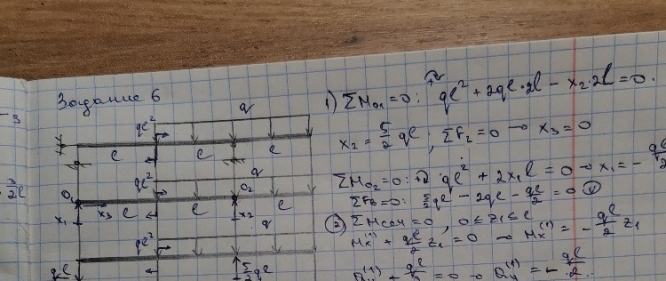 Задание 6
q
ql²
l
l
l
ql²
q
O₁
O₂
x₁
x₃
l
l
x₂
l
ql²
q
1) ΣM₀₁=0: ql² + 2ql·2l − x₂·2l = 0.
x₂ = 5/2 ql ; ΣF₂ = 0 → x₃ = 0
ΣM₀₂=0: ql² + 2x₁l = 0 → x₁ = −
5/2 ql − 2ql − ql/2 = 0
② ΣMсеч = 0, 0 ≤ z₁ ≤ l
Mx⁽¹⁾ + ql/2 z₁ = 0 → Mx⁽¹⁾ = − ql/2 z₁
= 0 → Qy⁽¹⁾ = − ql/2.
5/2 ql